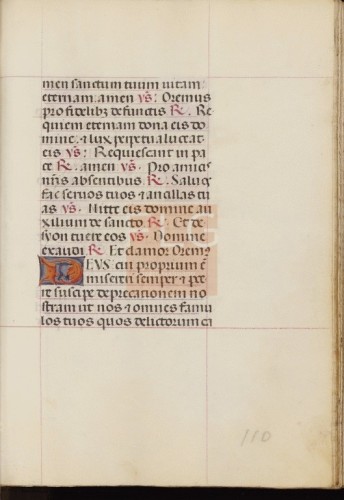 men sanctum tuum uitam
eternam. amen ℣: Oremus
pro fidelib; defunctis ℟. Re
quiem eternam dona eis do
mine. & lux ppetua luceat
eis ℣: Requiescant in pa
ce ℟. amen ℣. Pro amicis
nr̄is absentibus ℟. Saluos
fac seruos tuos & ancillas tu
as ℣. Mitte eis domine au
xilium de sancto. ℟. Et de
syon tuere eos ℣. Domine
exaudi. ℟. Et clamor. Orem9
DEVS cui proprium ē
misereri semper & par
cere suscipe deprecationem no
stram ut nos & omnes famu
los tuos quos delictorum ca
110